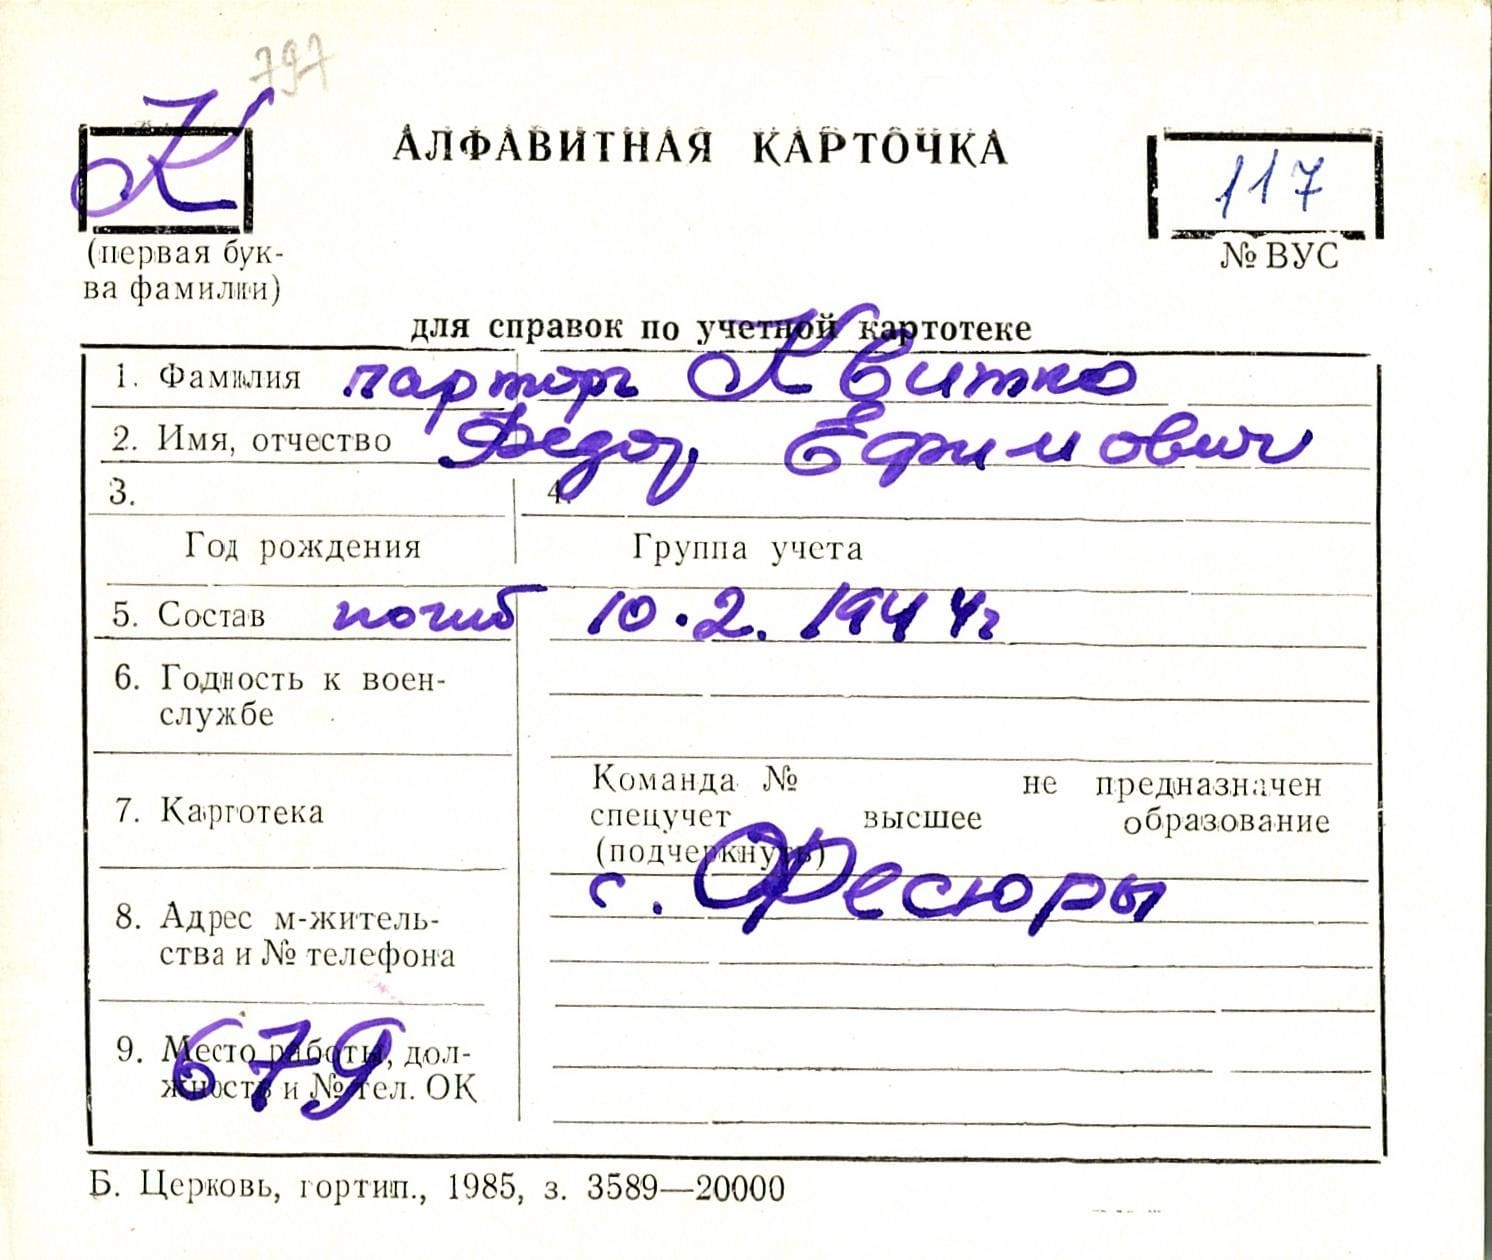 797
К
АЛФАВИТНАЯ КАРТОЧКА
117
(первая бук-
ва фамилии)
№ ВУС
для справок по учетной картотеке
1. Фамилия парторг Квитко
2. Имя, отчество Федор Ефимович
3. 4.
Год рождения Группа учета
5. Состав погиб 10.2.1944г
6. Годность к воен-
службе
7. Карготека
Команда № не предназначен
спецучет высшее образование
(подчеркнуть)
с. Фесюры
8. Адрес м-житель-
ства и № телефона
9. Место работы, дол-
жность и № тел. ОК
679
Б. Церковь, гортип., 1985, з. 3589—20000